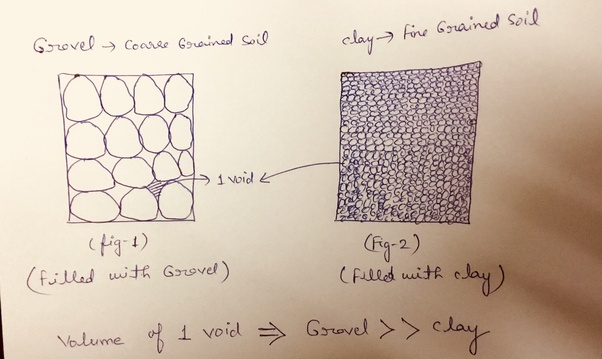 Gravel → Coarse Grained Soil
clay → Fine Grained Soil
1 void
(fig-1)
(Filled with Gravel)
(Fig-2)
(Filled with clay)
Volume of 1 void ⇒ Gravel >> clay